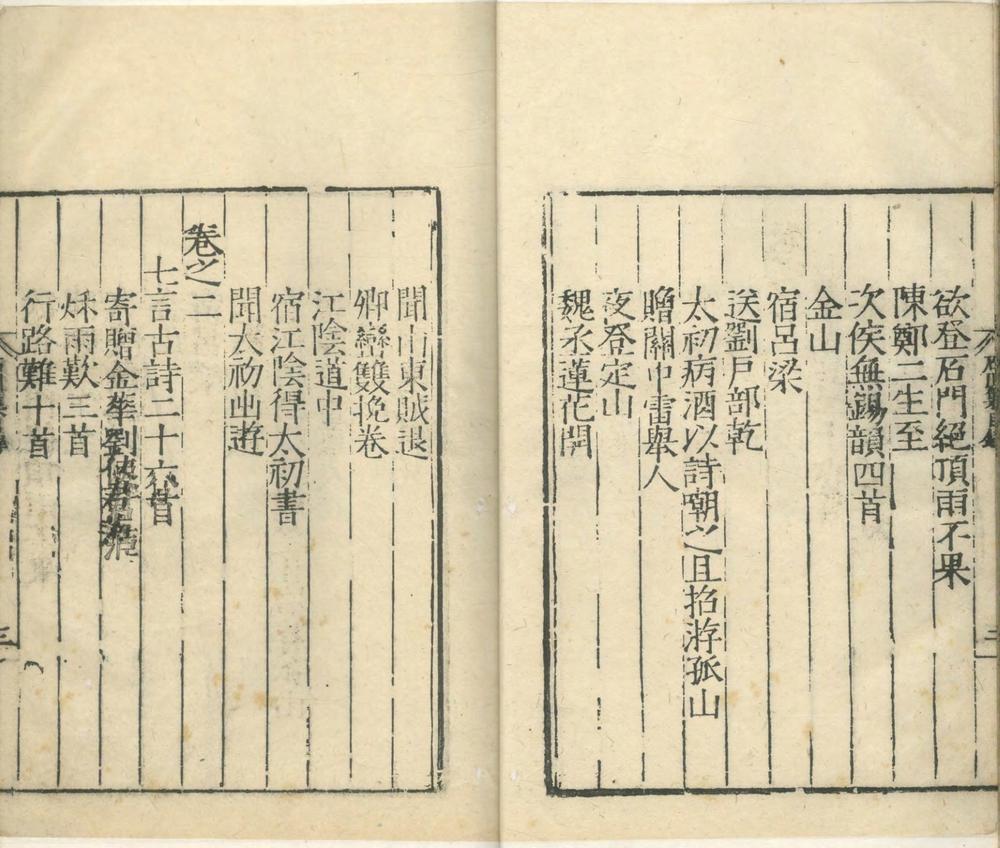 欲登石門絕頂雨不果
陳鄭二生至
次侯無錫韻四首
金山
宿呂梁
送劉戸部乾
太初病酒以詩嘲之且招游孤山
贈關中雷舉人
夜登定山
魏氶蓮花開
聞山東賊退
卿巒雙挽卷
江陰道中
宿江陰得太初書
聞太初出遊
卷之二
七言古詩二十六首
寄贈金華劉使君
秌雨歎三首
行路難十首
三